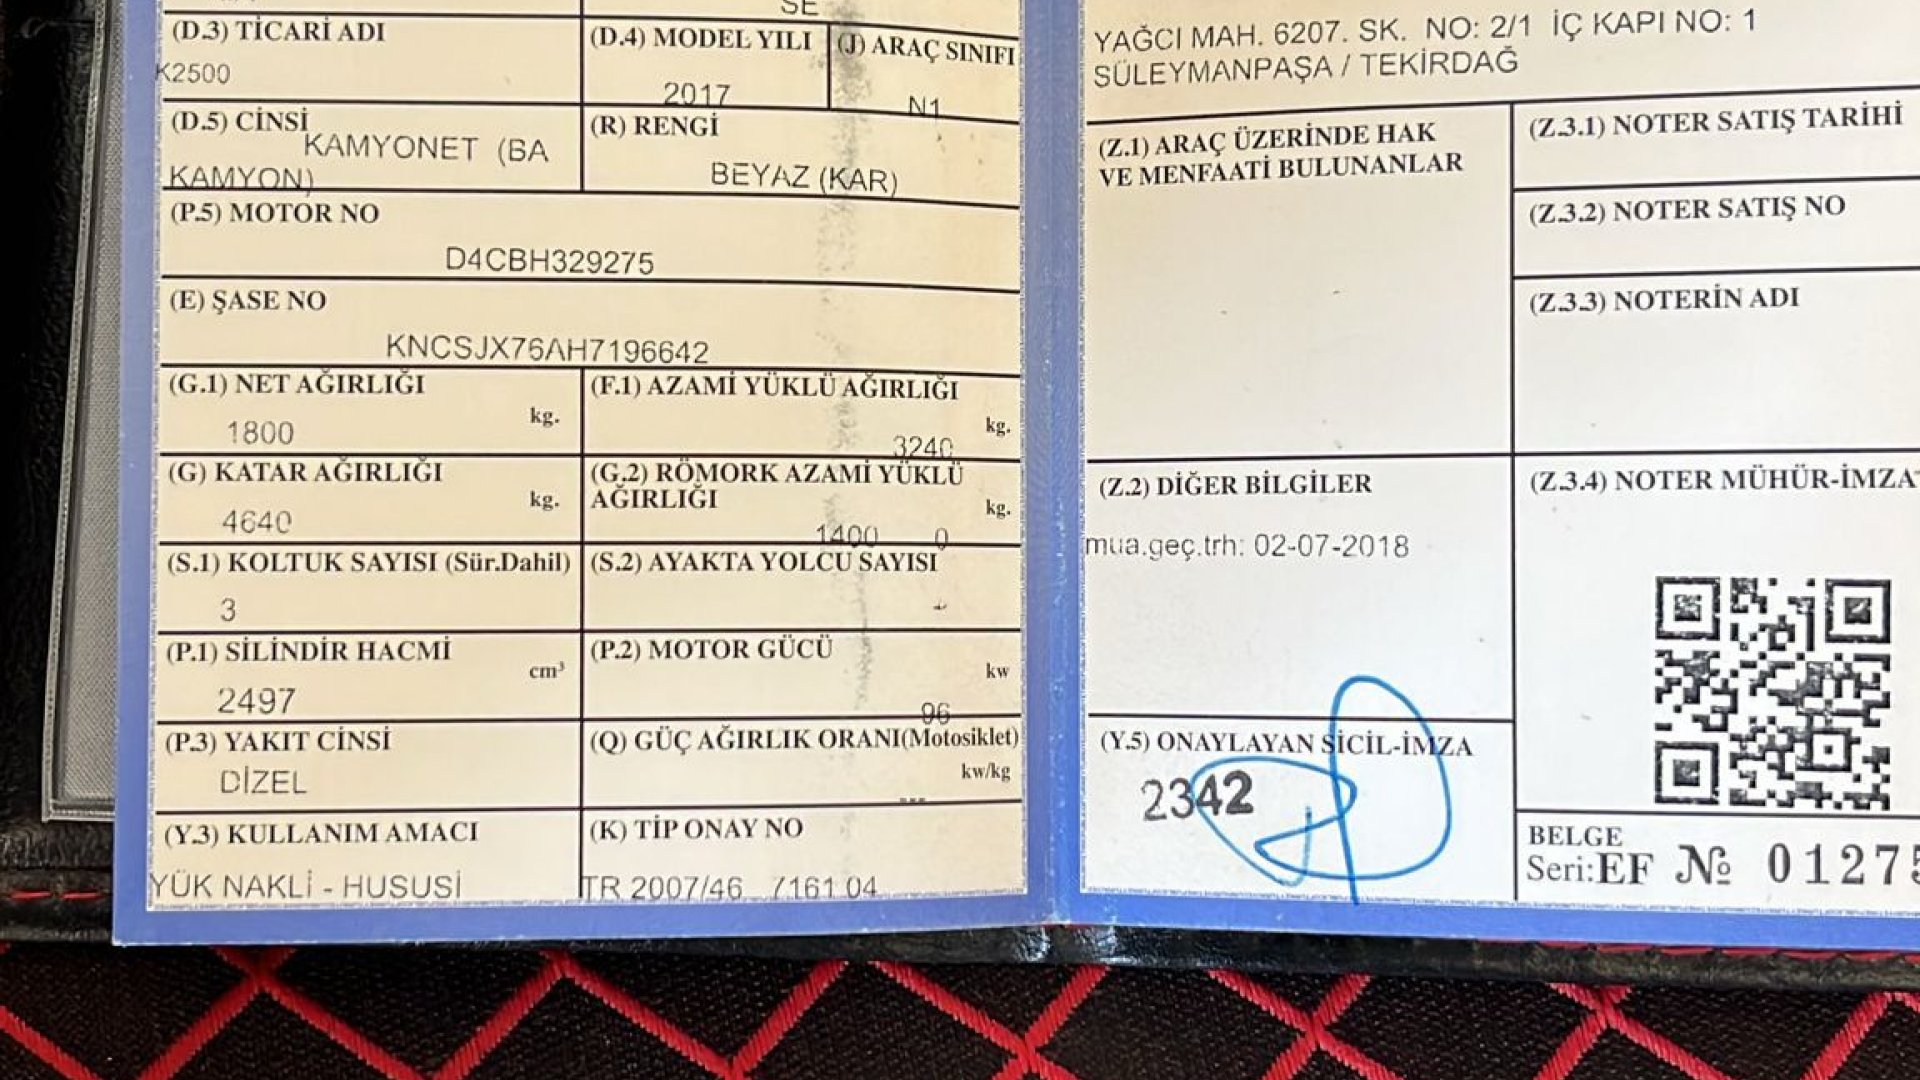 SE
(D.3) TİCARİ ADI
K2500
(D.4) MODEL YILI
2017
(J) ARAÇ SINIFI
N1
(D.5) CİNSİ
KAMYONET (BA
KAMYON)
(R) RENGİ
BEYAZ (KAR)
(P.5) MOTOR NO
D4CBH329275
(E) ŞASE NO
KNCSJX76AH7196642
(G.1) NET AĞIRLIĞI
kg.
1800
(F.1) AZAMİ YÜKLÜ AĞIRLIĞI
kg.
3240
(G) KATAR AĞIRLIĞI
kg.
4640
(G.2) RÖMORK AZAMİ YÜKLÜ
AĞIRLIĞI
kg.
1400 0
(S.1) KOLTUK SAYISI (Sür.Dahil)
3
(S.2) AYAKTA YOLCU SAYISI
-
(P.1) SİLİNDİR HACMİ
cm³
2497
(P.2) MOTOR GÜCÜ
kw
96
(P.3) YAKIT CİNSİ
DİZEL
(Q) GÜÇ AĞIRLIK ORANI(Motosiklet)
kw/kg
---
(Y.3) KULLANIM AMACI
YÜK NAKLİ - HUSUSİ
(K) TİP ONAY NO
TR 2007/46 7161 04
YAĞCI MAH. 6207. SK. NO: 2/1 İÇ KAPI NO: 1
SÜLEYMANPAŞA / TEKİRDAĞ
(Z.1) ARAÇ ÜZERİNDE HAK
VE MENFAATİ BULUNANLAR
(Z.3.1) NOTER SATIŞ TARİHİ
(Z.3.2) NOTER SATIŞ NO
(Z.3.3) NOTERİN ADI
(Z.2) DİĞER BİLGİLER
mua.geç.trh: 02-07-2018
(Z.3.4) NOTER MÜHÜR-İMZA
(Y.5) ONAYLAYAN SİCİL-İMZA
2342
BELGE
Seri:EF № 01275